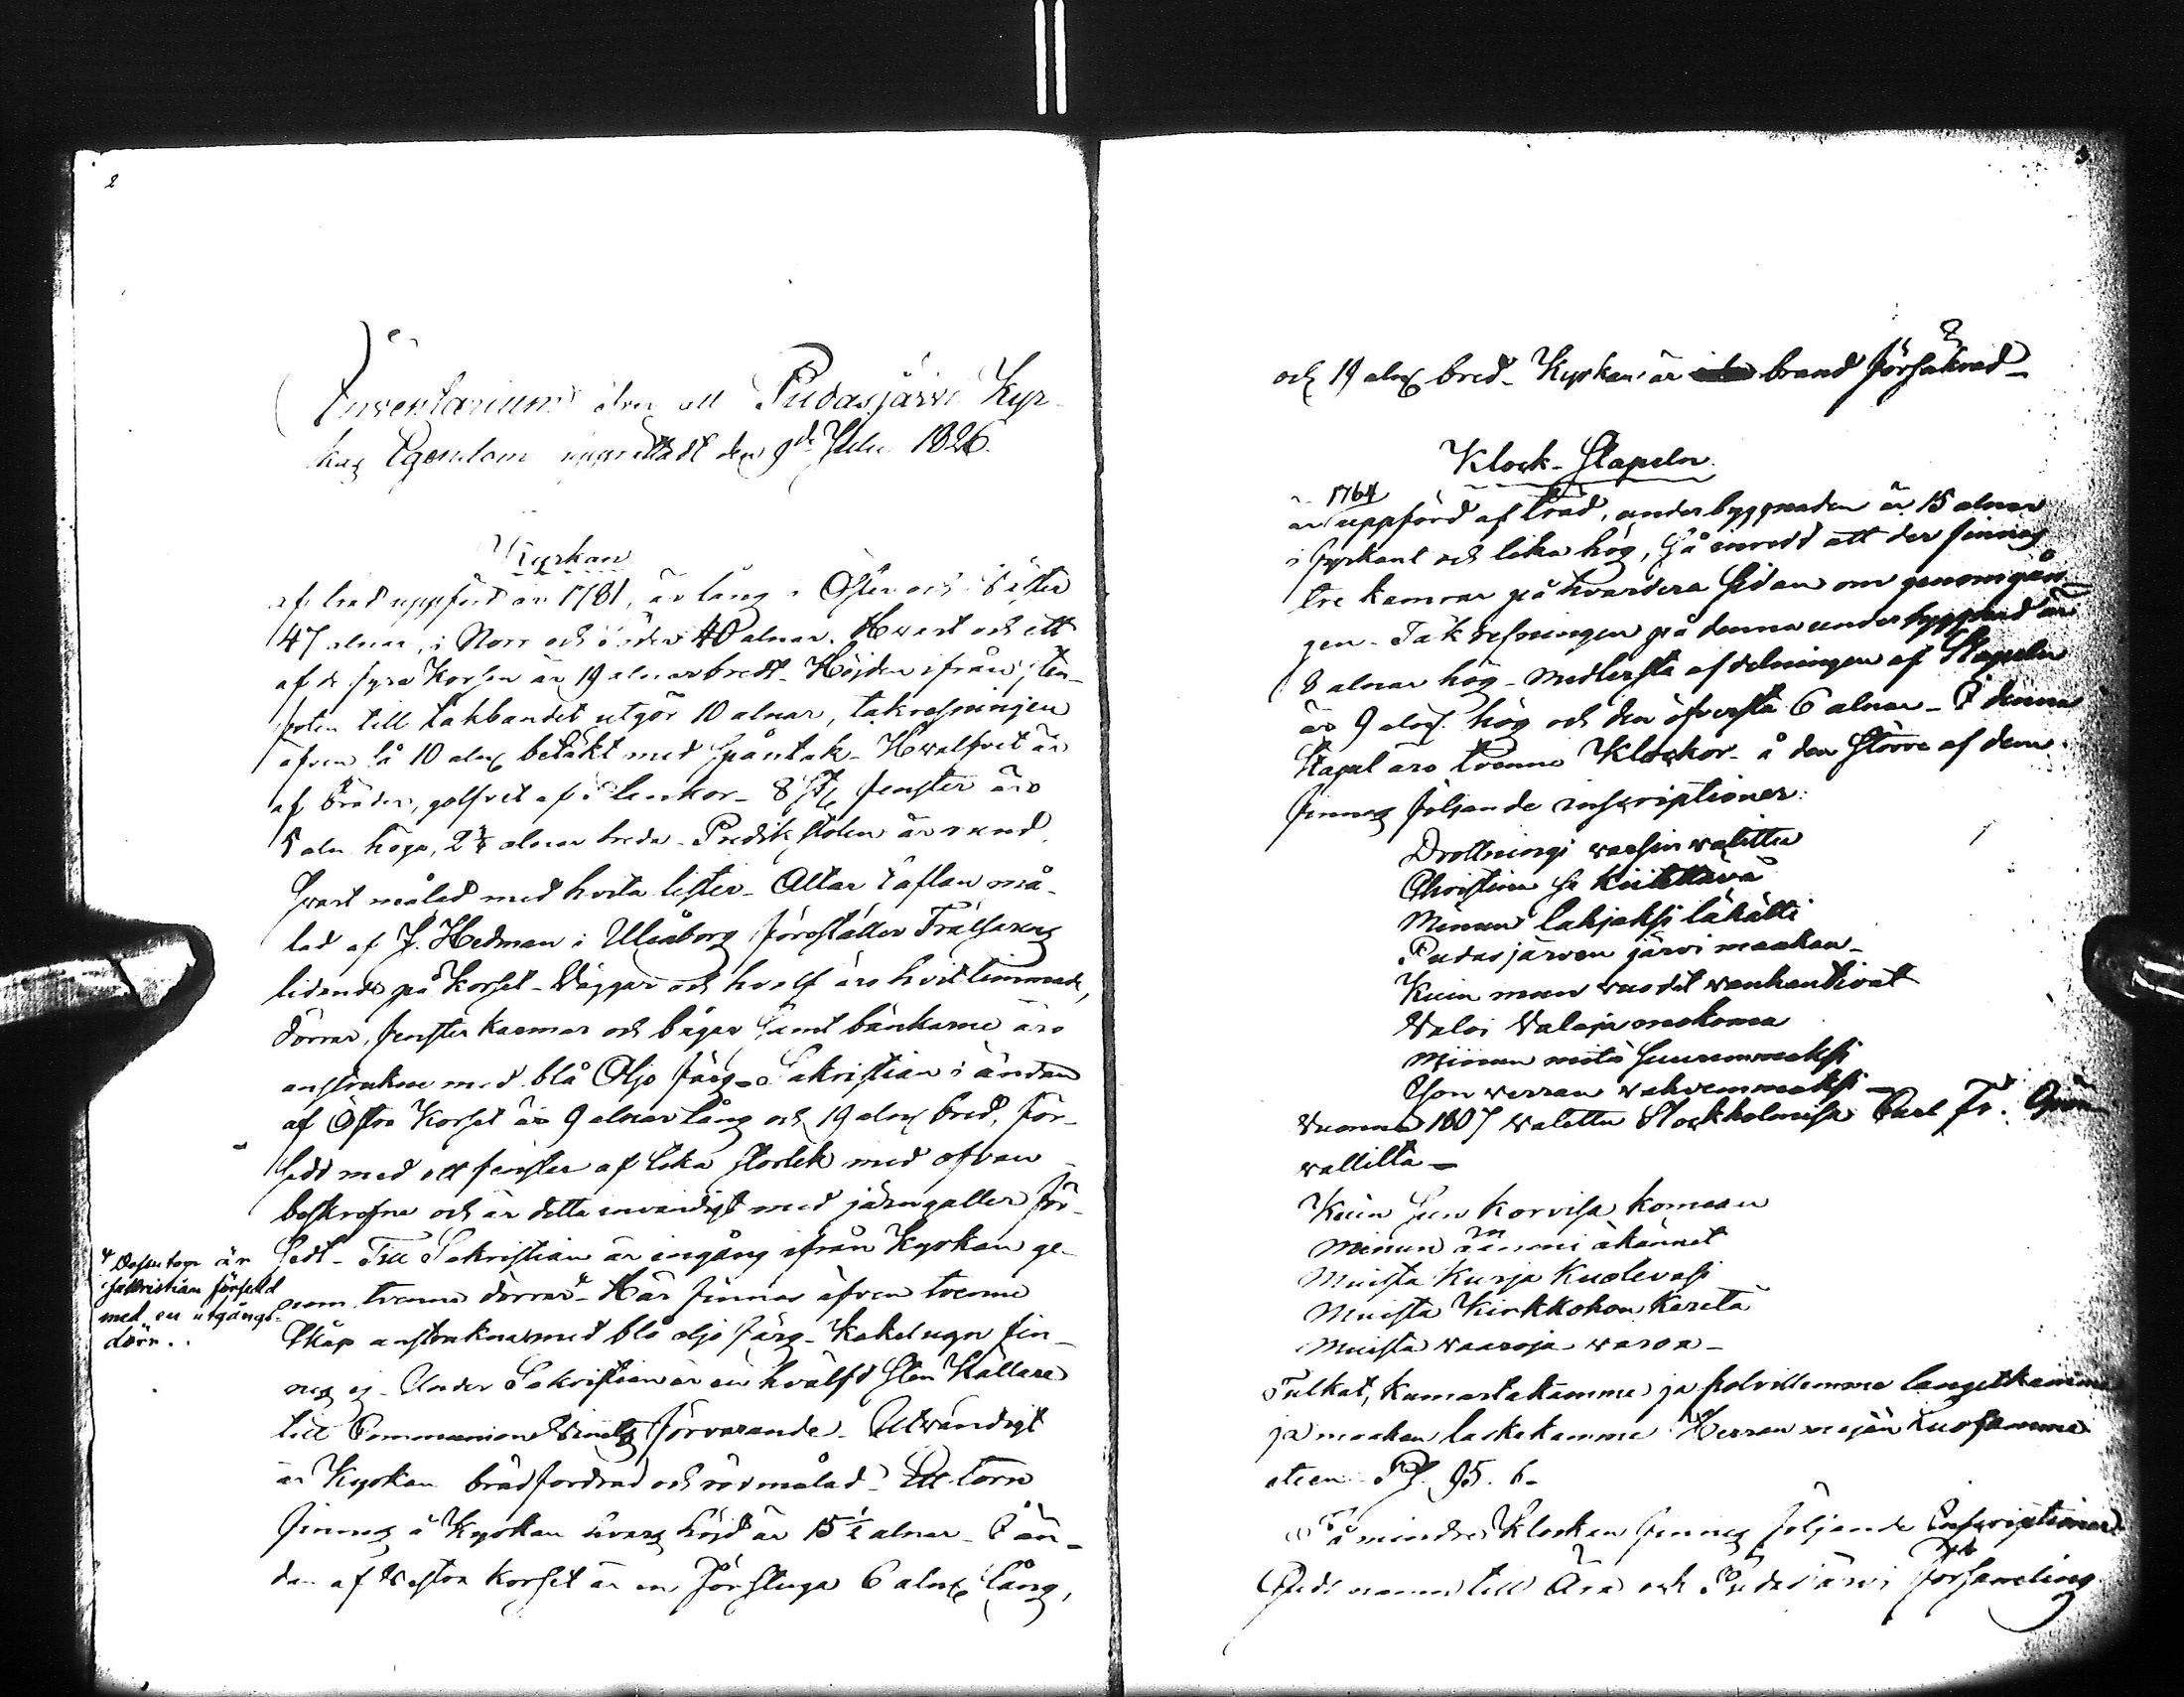 2
Inventarium öfver all Pudasjärvi Kyr-
kas Egendom upprättadt den 9de Julii 1826.
Kyrkan
af träd uppförd år 1781, är lång i Öster och Vester
47 alnar, i Norr och Söder 40 alnar. Hvart och ett
af de fyra Korsen är 19 alnar bredt - Höjden ifrån sten-
foten till takbandet utgör 10 alnar, takresningen
äfven så 10 alnr betäkt med Spåntak - Hvalfvet är
af bräder, golfvet af plankor - 8 St. fenster äro
5 aln höga, 2¼ alnar breda - Predikstolen är rund
svart målad med hvita lister - Altar taflan må-
lad af J. Hedman i Uleåborg föreställer Frälsarens
lidande på Korset - Väggar och hvalf äro hvitlimmade,
dörrar, fensterkarmar och bågar samt bänkarne äro
anstrukne med blå Oljo färg - Sakristian i ändan
af Östra Korset är 9 alnar lång och 19 alnr bred, för-
sedd med ett fenster af lika storlek med ofvan
beskrefne och är detta invändigt med järngaller för-
sedt - Till Sakristian är ingång ifrån Kyrkan ge-
nom tvenne dörrar - Här finnas äfven tvenne
Skåp anstrukna med blå oljo färg - Kakelugn fin-
nes ej - Under Sakristian är en hvälfd Sten Källare
till Communion Vinets förvarande - Utvändigt
är Kyrkan brädfordrad och rödmålad - Ett torn
finnes å Kyrkan hvars höjd är 15½ alnar - I än-
dan af Vestra Korset är en Förstuga 6 alnr lång,
+ Dessutom är
sakristian försedd
med en utgångs-
dörr.
3
och 19 alnr bred - Kyrkan är brand försäkrad -
Klock-Stapeln
1764
är uppförd af träd, underbyggnaden är 15 alnar
i fyrkant och lika hög, så inredd att der finnes
tre kamrar på hvardera sidan om genomgån-
gen - Takresningen på denna underbyggnad är
8 alnar hög - Medlersta afdelningen af Stapeln
är 9 alnr hög och den öfversta 6 alnar - I denna
Stapel äro tvenne Klockor - å den större af dem
finnes följande inscriptioner:
Drottningi waesin walittu
Christina se Kiitettävä
Minun lahjaksi lähätti
Pudasjärven järvi maahan -
Kuin muun vuodet vanhentivat
Valoi Valaja mokoma
Minun mitä Suuremmaksi
Yson verran vahvemmaksi -
Vuonna 1807 valettu Stockholmissa Carl Fr.
vallilta -
Kuin Sun korvissa komean
Minun ääneni äkännet
Muista Kurja Kuolevasi
Muista Kirkkohon Käretä
Muista vaaroja varoa -
Tulkat, Kumartakamme ja polvillemme langetkamme
ja maahan laskekamme Herran meján Luojamme
eteen Ps. 95. 6 -
På mindre Klockan finnes följande Inscriptioner
Guds namn till Ära och Pudasjärvi församling